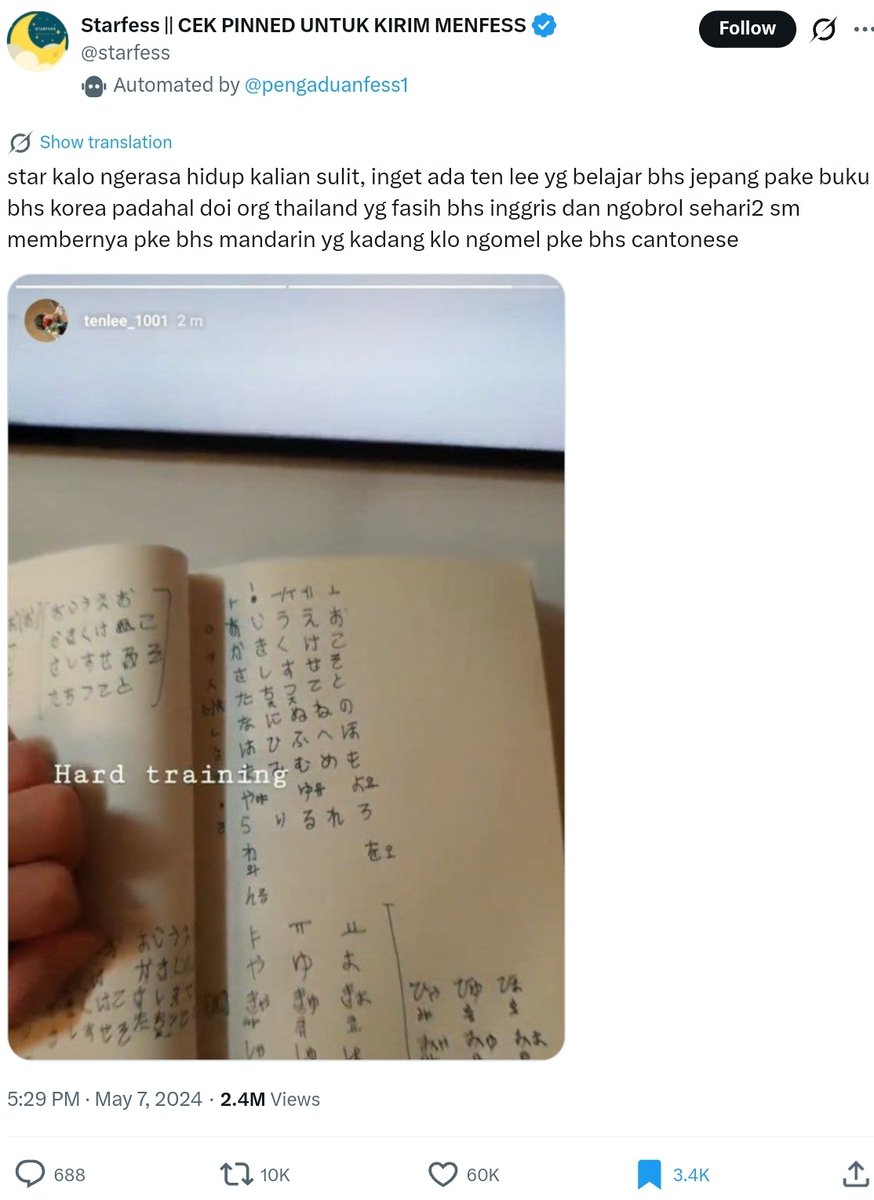 Starfess || CEK PINNED UNTUK KIRIM MENFESS
Follow
@starfess
Automated by @pengaduanfess1
Show translation
star kalo ngerasa hidup kalian sulit, inget ada ten lee yg belajar bhs jepang pake buku
bhs korea padahal doi org thailand yg fasih bhs inggris dan ngobrol sehari2 sm
membernya pke bhs mandarin yg kadang klo ngomel pke bhs cantonese
tenlee_1001 2 m
おいうえお
かきくけ こ
さしすせ そ
たちつてと
ㅏ ㅣ ㅜ ㅔ ㅗ
あ い う え お
か き く け こ
さ し す せ そ
た ち つ て と
な に ぬ ね の
は ひ ふ へ ほ
み む め も
Hard training
や야 ゆ유 よ요
ら り る れ ろ
わ を오
와
ん
ㅑ ㅠ ㅛ
や ゆ よ
きゃ きゅ きょ
ひゃ ひゅ ひょ
しゃ しゅ しょ
みゃ みゅ みょ
5:29 PM · May 7, 2024 · 2.4M Views
688
10K
60K
3.4K